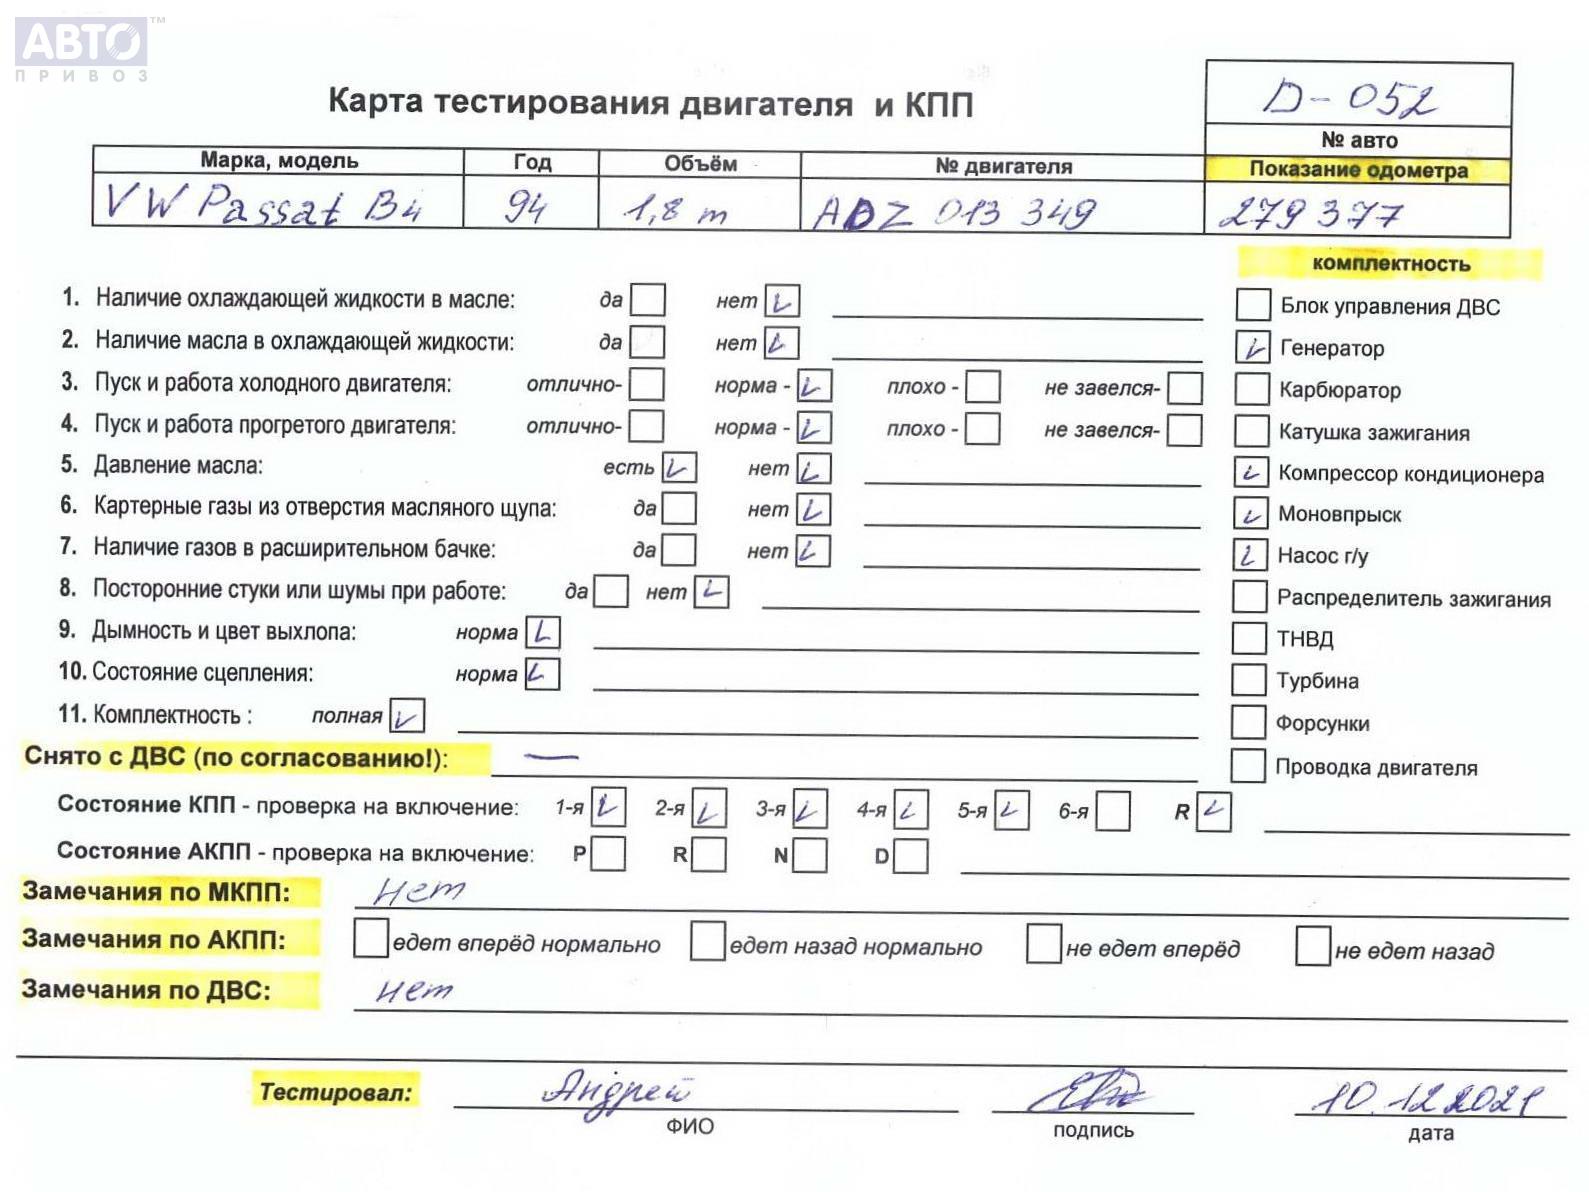 АВТО™
ПРИВОЗ
D-052
Карта тестирования двигателя и КПП
№ авто
Марка, модель Год Объём № двигателя Показание одометра
VW Passat B4 94 1,8 m ADZ 013 349 279 377
комплектность
1. Наличие охлаждающей жидкости в масле: да нет Блок управления ДВС
2. Наличие масла в охлаждающей жидкости: да нет Генератор
3. Пуск и работа холодного двигателя: отлично- норма - плохо - не завелся- Карбюратор
4. Пуск и работа прогретого двигателя: отлично- норма - плохо - не завелся- Катушка зажигания
5. Давление масла: есть нет Компрессор кондиционера
6. Картерные газы из отверстия масляного щупа: да нет Моновпрыск
7. Наличие газов в расширительном бачке: да нет Насос г/у
8. Посторонние стуки или шумы при работе: да нет Распределитель зажигания
9. Дымность и цвет выхлопа: норма ТНВД
10. Состояние сцепления: норма Турбина
11. Комплектность : полная Форсунки
Снято с ДВС (по согласованию!): — Проводка двигателя
Состояние КПП - проверка на включение: 1-я 2-я 3-я 4-я 5-я 6-я R
Состояние АКПП - проверка на включение: P R N D
Замечания по МКПП: нет
Замечания по АКПП: едет вперёд нормально едет назад нормально не едет вперёд не едет назад
Замечания по ДВС: нет
Тестировал: Андрей 10.12.2021
ФИО подпись дата